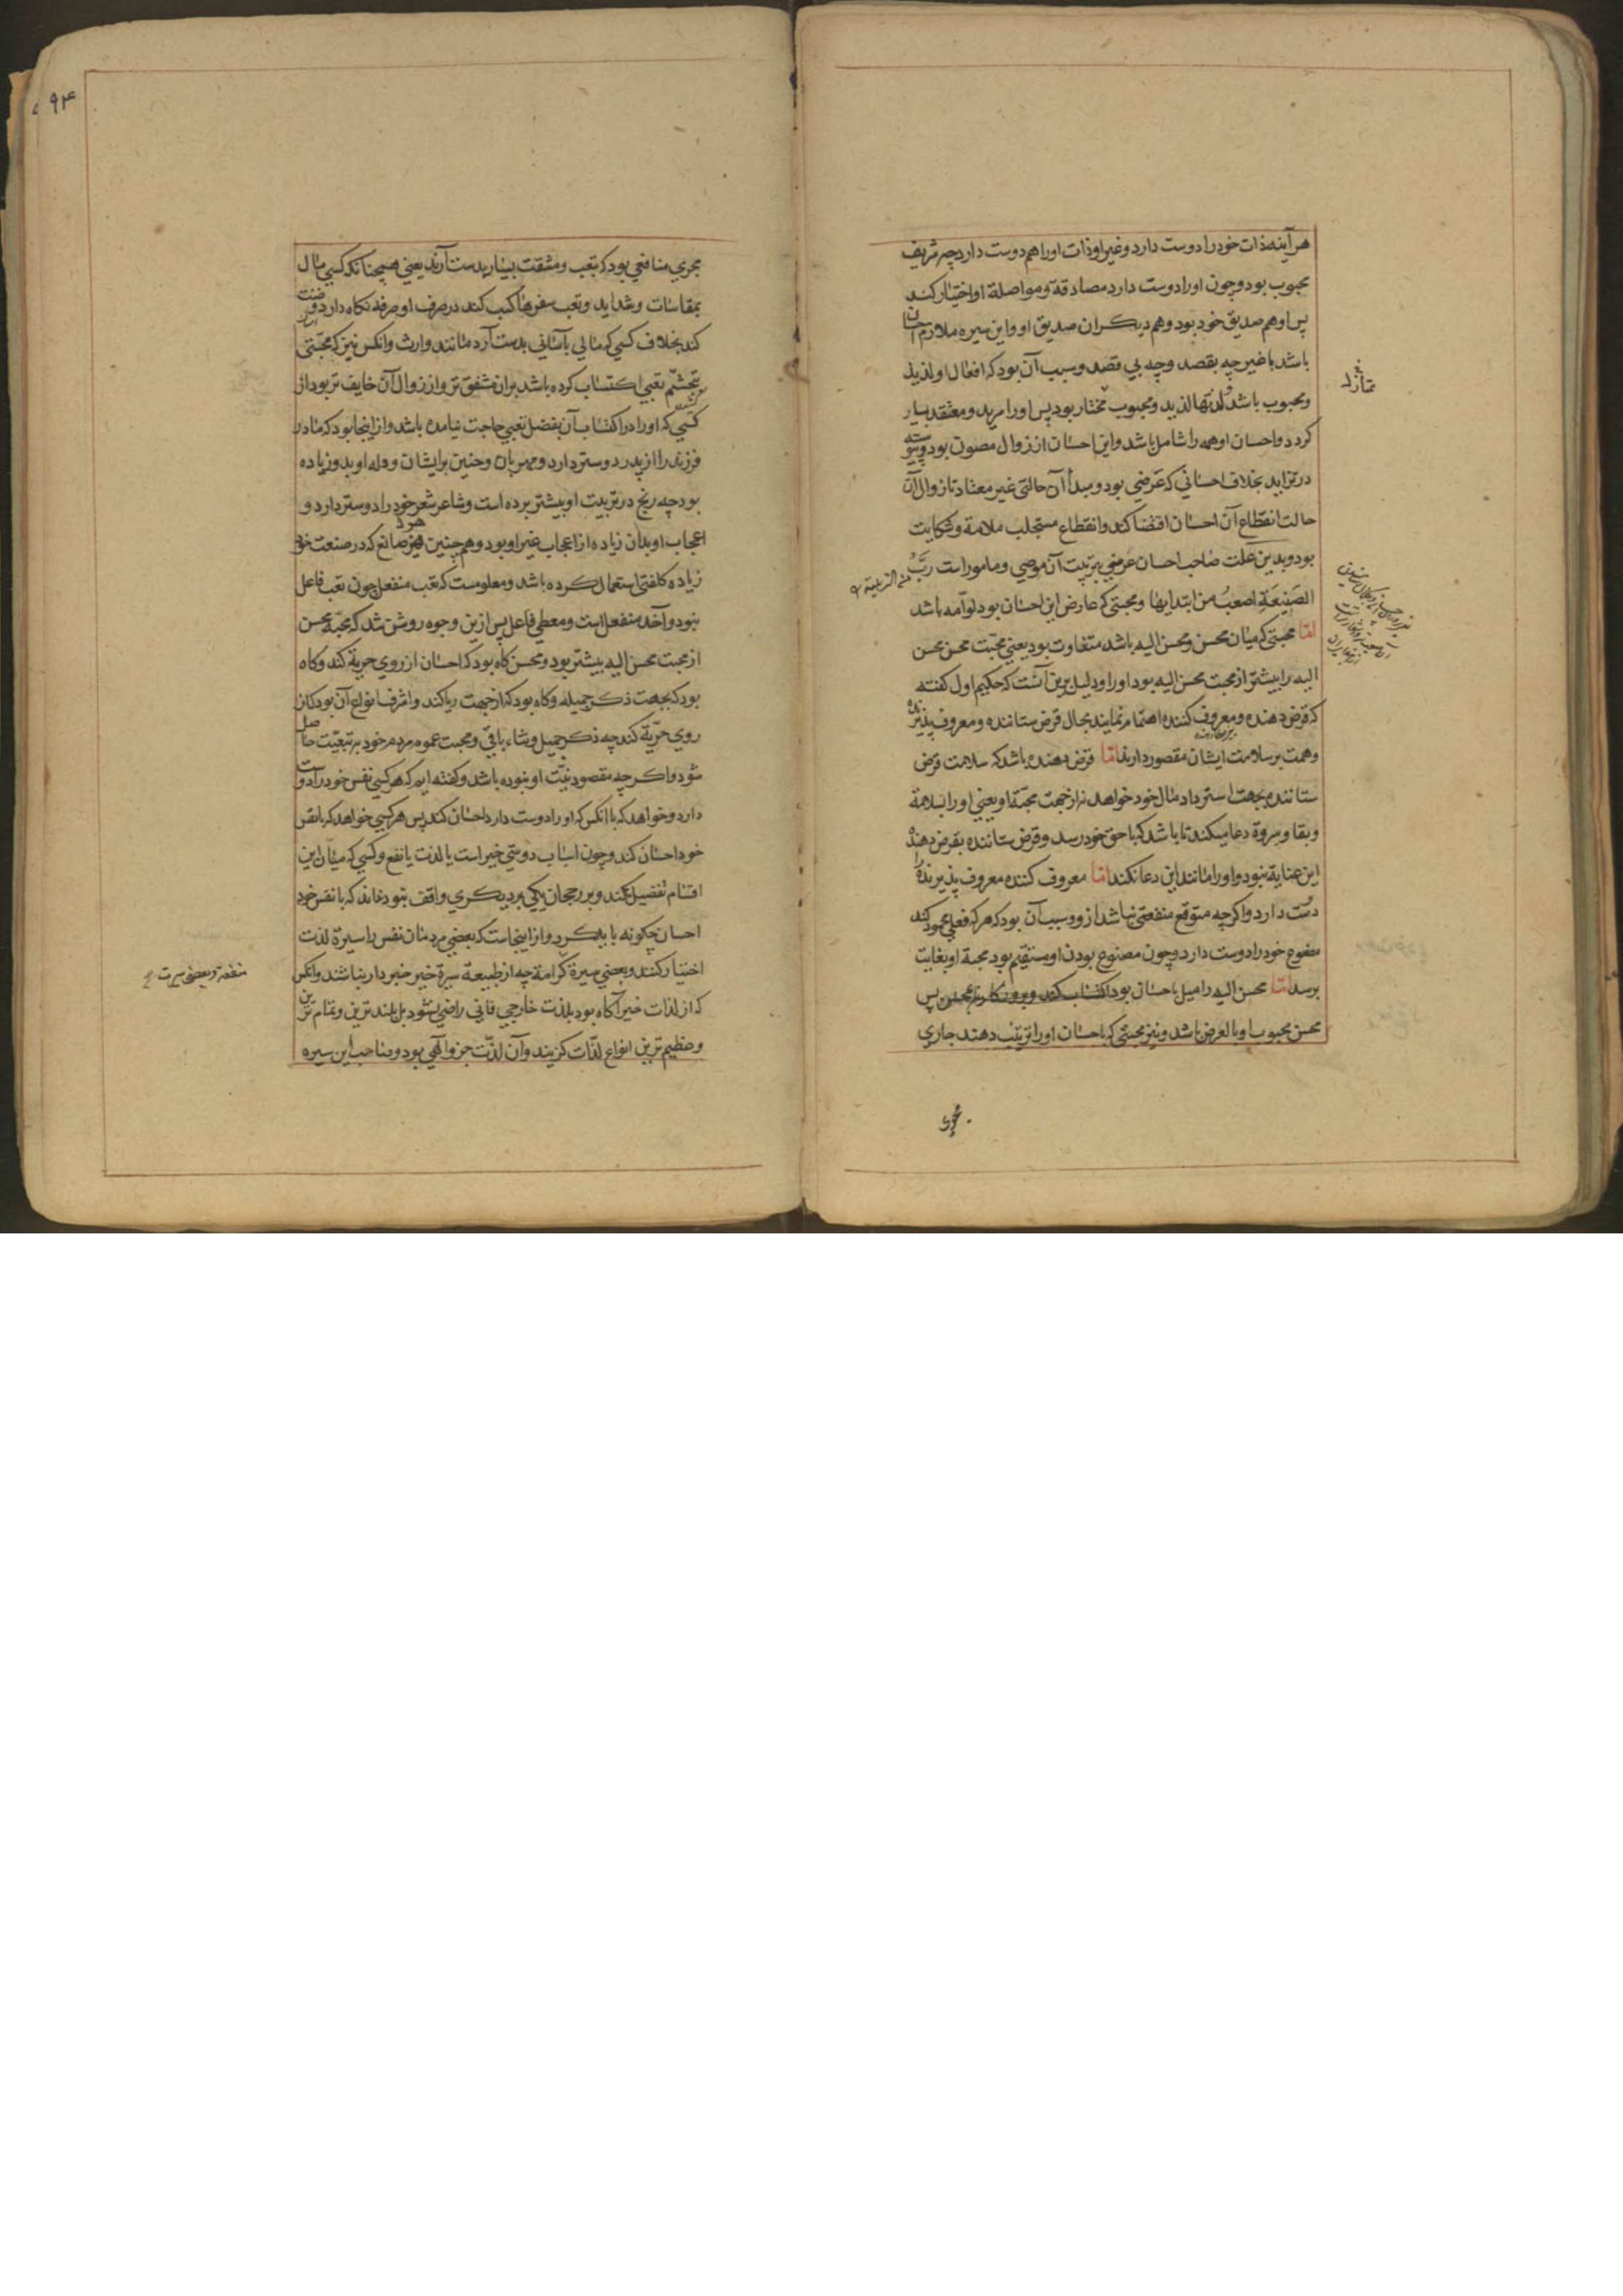 هر آینه ذات خود را دوست دارد و غیر او ذات او را هم دوست دارد چه شریف
محبوب بود و چون او را دوست دارد مصادقة و مواصلة او اختیار کند
پس او هم صدیق خود بود و هم دیکران صدیق او و این سیره ملازم احسان
باشد با غیر چه بقصد و چه بی قصد و سبب آن بود که افعال او لذیذ
و محبوب باشد لذتها لذید و محبوب مختار بود پس او را مرید و معتقد بسیار
کردد و احسان او همه را شامل باشد و این احسان از زوال مصون بود و پیوسته
در تزاید بخلاف احسانی که عرضی بود و مبدأ آن حالتی غیر معتاد تا زوال آن
حالت انقطاع آن احسان اقتضا کند و انقطاع مستجلب ملامة و شکایت
بود و بدین علت صاحب احسان عرضی بتربیت آن موصی و مامور است ربّ
الصَنِیعَةِ اصعبُ من ابتدایها و محبتی که عارض این احسان بود لوآمه باشد
امّا محبتی که میان محسن و محسن الیه باشد متفاوت بود یعنی محبّت محسن محسن
الیه را بیشتر از محبت محسن الیه بود او را و دلیل برین آنست که حکیم اول کفته
که قرض دهنده و معروف کننده اهتمام نمایند بحال قرض ستاننده و معروف پذیرنده
و همت بر سلامت ایشان مقصور دارند امّا قرض دهنده باشد که سلامت قرض
ستاننده بجهت استرداد مال خود خواهد نه از جهت محبّة او یعنی او را بسلامة
و بقا و سروة دعا میکند تا باشد که با حق خود رسد و قرض ستاننده بقرض دهنده
این عنایة نبود و او را مانند این دعا نکند امّا معروف کننده معروف پذیرنده را
دوست دارد و اکرچه متوقع منفعتی نباشد ازو و سبب آن بود که هر که فعلی محمود کند
مصنوع خود را دوست دارد و چون مصنوع بودن او مستقیم بود محبة او بغایت
برسد امّا محسن الیه را میل باحسان بود
محسن محبوب او بالعرض باشد و نیز محبتی که باحسان او را تربیت دهند جاری
مجری
۹۴
مجری منافعی بود که بتعب و مشقت بسیار بدست آرند یعنی همچنانکه کسی مال
بمقاسات و شداید و تعب سفرها کسب کند در صرف او صرفه نکاه دارد و ضنت
کند بخلاف کسی که مالی بآسانی بدست آرد مانند وارث و انکس نیز که محبّتی
بتجشّم تعبی اکتساب کرده باشد بران مشفق تر و از زوال آن خایف تر بود از
کسی که او را در اکتساب آن بفضل تعبی حاجت نیامده باشد و از اینجا بود که مادر
فرزند را از پدر دوستر دارد و مهربان و حنین بر ایشان و وله او بدو زیاده
بود چه رنج در تربیت او بیشتر برده است و شاعر شعر خود را دوستر دارد و
اعجاب او بدان زیاده از اعجاب غیر او بود و همچنین هر صانع که در صنعت خود
زیاده کلفتی استعمال کرده باشد و معلومست که تعب منفعل چون تعب فاعل
نبود و آخذ منفعل است و معطی فاعل پس ازین وجوه روشن شد که محبّة محسن
از محبت محسن الیه بیشتر بود و محسن کاه بود که احسان از روی حریة کند و کاه
بود که بجهت ذکر جمیله و کاه بود که از جهت ریا کند و اشرف انواع آن بود کان
روی حرّیة کند چه ذکر جمیل و ثناء باقی و محبت عموم مردم خود بر تبعیّت حاصل
شود و اکرچه مقصود نیّت او نبوده باشد و کفته ایم که هر کسی نفس خود را دوست
دارد و خواهد که با انکس که او را دوست دارد احسان کند پس هر کسی خواهد که با نفس
خود احسان کند و چون اسباب دوستی خیر است یا لذت یا نفع و کسی که میان این
اقسام تفضیل نکند و بر رجحان یکی بر دیکری واقف نبود نداند که با نفس خود
احسان چکونه باید کرد و از اینجاست که بعضی مردمان نفس را سیرة لذت
اختیار کنند و بعضی سیرة کرامة چه از طبیعة سیرة خیر خبردار نباشند و انکس
منفعة و بعضی سیرت
که از لذات خیر آکاه بود بلذت خارجی فانی راضی نشود بل بلندترین و تمام ترین
و عظیم ترین انواع لذّات کزیند و آن لذّت جزو الهی بود و صاحب این سیره